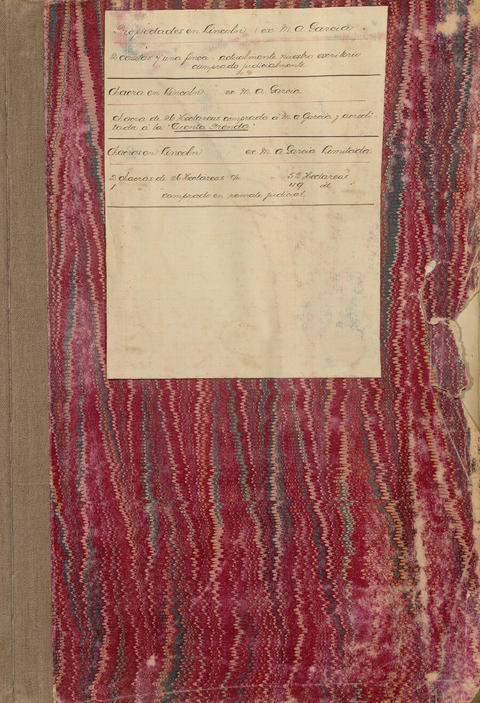 Propiedades en Lincoln ex M. A. Garcia
2 casitas y una finca actualmente nuestro escritorio
comprado judicialmente
Chacra en Lincoln ex M. A. Garcia
Chacra de 26 Hectareas comprada á M. A. Garcia y acredi-
tada a la "Cuenta Prenda"
Chacras en Lincoln ex M. A. Garcia Limitada
2 chacras de 26 Hectareas c/u 52 Hectareas
1 49 id "
comprado en remate judicial